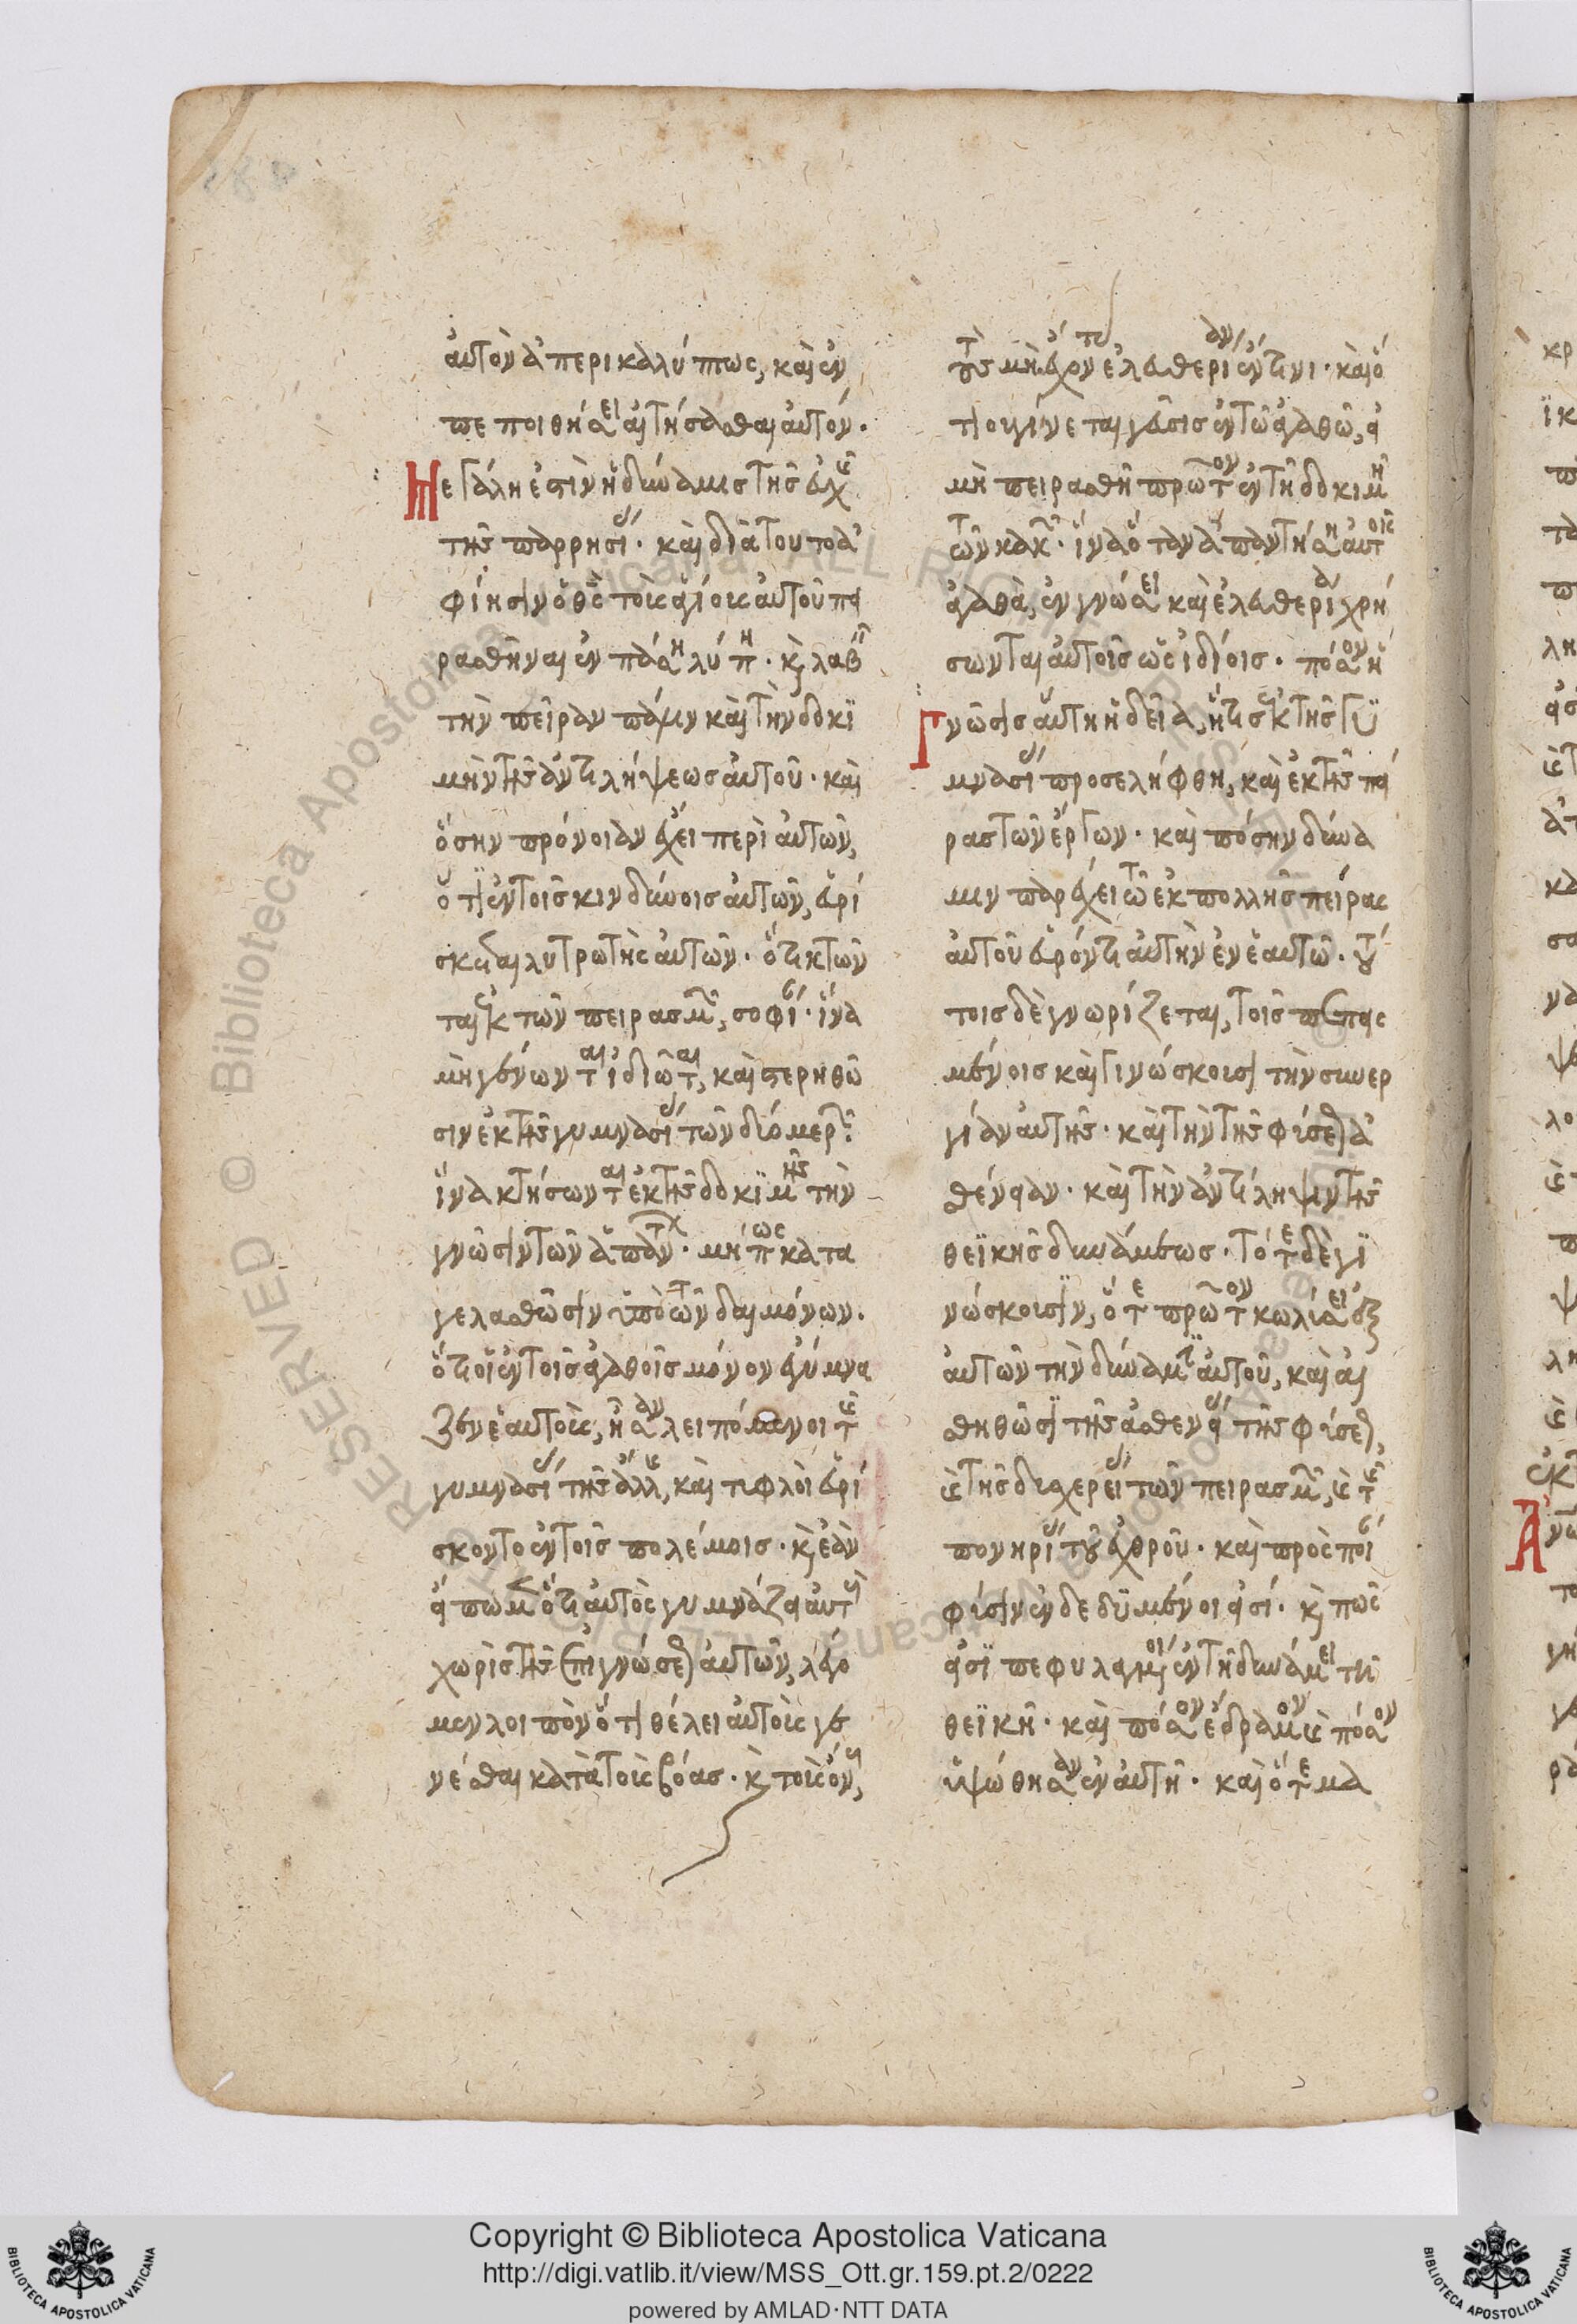 αὐτὸν ἀπερικαλύπτως, καὶ ἐν
πεποιθήσει αἰτήσασθαι αὐτόν.
Μεγάλη ἐστὶν ἡ δύναμις τῆς εὐχῆς
τῆς παρρησίας. καὶ διὰ τοῦτο ἀ
φίησιν ὁ θεὸς τοὺς ἁγίους αὐτοῦ πει
ρασθῆναι ἐν πάσῃ λύπῃ. καὶ λαβεῖν
τὴν πεῖραν πάλιν καὶ τὴν δοκι
μὴν τῆς ἀντιλήψεως αὐτοῦ. καὶ
ὅσην πρόνοιαν ἔχει περὶ αὐτῶν,
ὅτι ἐν τοῖς κινδύνοις αὐτῶν, εὑρί
σκεται λυτρωτὴς αὐτῶν. ὅτι κτῶν
ται ἐκ τῶν πειρασμῶν, σοφίαν. ἵνα
μὴ γένωνται ἰδιῶται, καὶ στερηθῶ
σιν ἐκ τῆς γυμνασίας τῶν δύο μερῶν.
ἵνα κτήσωνται ἐκ τῆς δοκιμῆς τὴν
γνῶσιν τῶν ἁπάντων. μήπως κατα
γελασθῶσιν ὑπὸ τῶν δαιμόνων.
ὅτι εἰ ἐν τοῖς ἀγαθοῖς μόνον ἐγύμνα
ζεν ἑαυτούς, ἦσαν λειπόμενοι τῆς
γυμνασίας τῆς ἄλλης, καὶ τυφλοὶ εὑρί
σκοντο ἐν τοῖς πολέμοις. καὶ ἐὰν
εἴπωμεν ὅτι αὐτὸς γυμνάζει αὐτοὺς
χωρὶς τῆς ἐπιγνώσεως αὐτῶν, λέγο
μεν λοιπὸν ὅτι θέλει αὐτοὺς γε
νέσθαι κατὰ τοὺς βόας. καὶ τοὺς ὄνους,
τοὺς μὴ ἔχοντας ἐλευθερίαν ἔν τινι. καὶ ὅ
τι οὐ γίνεται γεῦσις ἐν τῷ ἀγαθῷ, εἰ
μὴ πειρασθῇ πρῶτον ἐν τῇ δοκιμῇ
τῶν κακῶν. ἵνα ὅταν ἀπαντήσῃ αὐτοῖς
ἀγαθά, ἐν γνώσει καὶ ἐλευθερίᾳ χρή
σωνται αὐτοῖς ὡς ἰδίοις. πόσον ἡ
Γνῶσις αὕτη ἡδεῖα, ἥτις ἐκ τῆς γυ
μνασίας προσελήφθη, καὶ ἐκ τῆς πεί
ρας τῶν ἔργων. καὶ πόσην δύνα
μιν παρέχει τῷ ἐκ πολλῆς πείρας
αὐτοῦ εὑρόντι αὐτὴν ἐν ἑαυτῷ. τού
τοις δὲ γνωρίζεται, τοῖς πεπεισ
μένοις καὶ γινώσκουσι τὴν συνερ
γίαν αὐτῆς. καὶ τὴν τῆς φύσεως ἀ
σθένειαν. καὶ τὴν ἀντίληψιν τῆς
θεϊκῆς δυνάμεως. τότε δὲ γι
νώσκουσιν, ὅτε πρῶτον κωλύσει ἐξ
αὐτῶν τὴν δύναμιν αὐτοῦ, καὶ αἰ
σθηθῶσι τῆς ἀσθενείας τῆς φύσεως,
καὶ τῆς δυσχερείας τῶν πειρασμῶν, καὶ τῆς
πονηρίας τοῦ ἐχθροῦ. καὶ πρὸς ποίαν
φύσιν ἐνδεδυμένοι εἰσί. καὶ πῶς
εἰσὶ πεφυλαγμένοι ἐν τῇ δυνάμει τῇ
θεϊκῇ. καὶ πόσον ἔδραμον καὶ πόσον
ὑψώθησαν ἐν αὐτῇ. καὶ ὅτε μα
Copyright © Biblioteca Apostolica Vaticana
http://digi.vatlib.it/view/MSS_Ott.gr.159.pt.2/0222
powered by AMLAD·NTT DATA